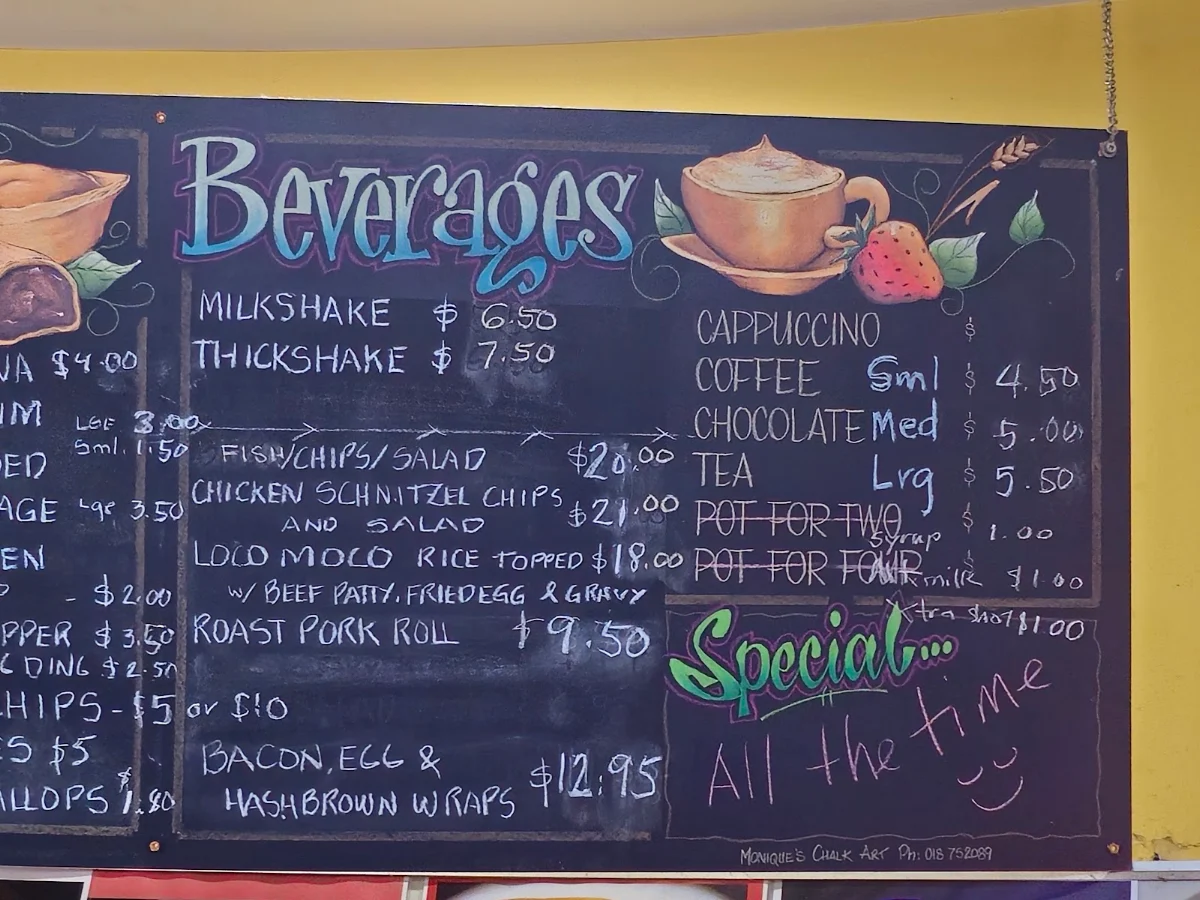 Beverages
MILKSHAKE $ 6.50
THICKSHAKE $ 7.50
FISH/CHIPS/SALAD $20.00
CHICKEN SCHNITZEL CHIPS
AND SALAD $21.00
LOCO MOCO RICE TOPPED $18.00
W/ BEEF PATTY, FRIED EGG & GRAVY
ROAST PORK ROLL $9.50
BACON, EGG &
HASHBROWN WRAPS $12.95
CAPPUCCINO $
COFFEE Sml $ 4.50
CHOCOLATE Med $ 5.00
TEA Lrg $ 5.50
POT FOR TWO $
Syrup 1.00
POT FOR FOUR $
milk $1.00
Xtra shot $1.00
Special...
All the time
MONIQUE'S CHALK ART PH: 018 752089
$4.00
LGE 3.00
Sml. 1.50
AGE Lge 3.50
- $2.00
PPER $3.50
DING $2.50
CHIPS - $5 or $10
$5
ALLOPS $1.80